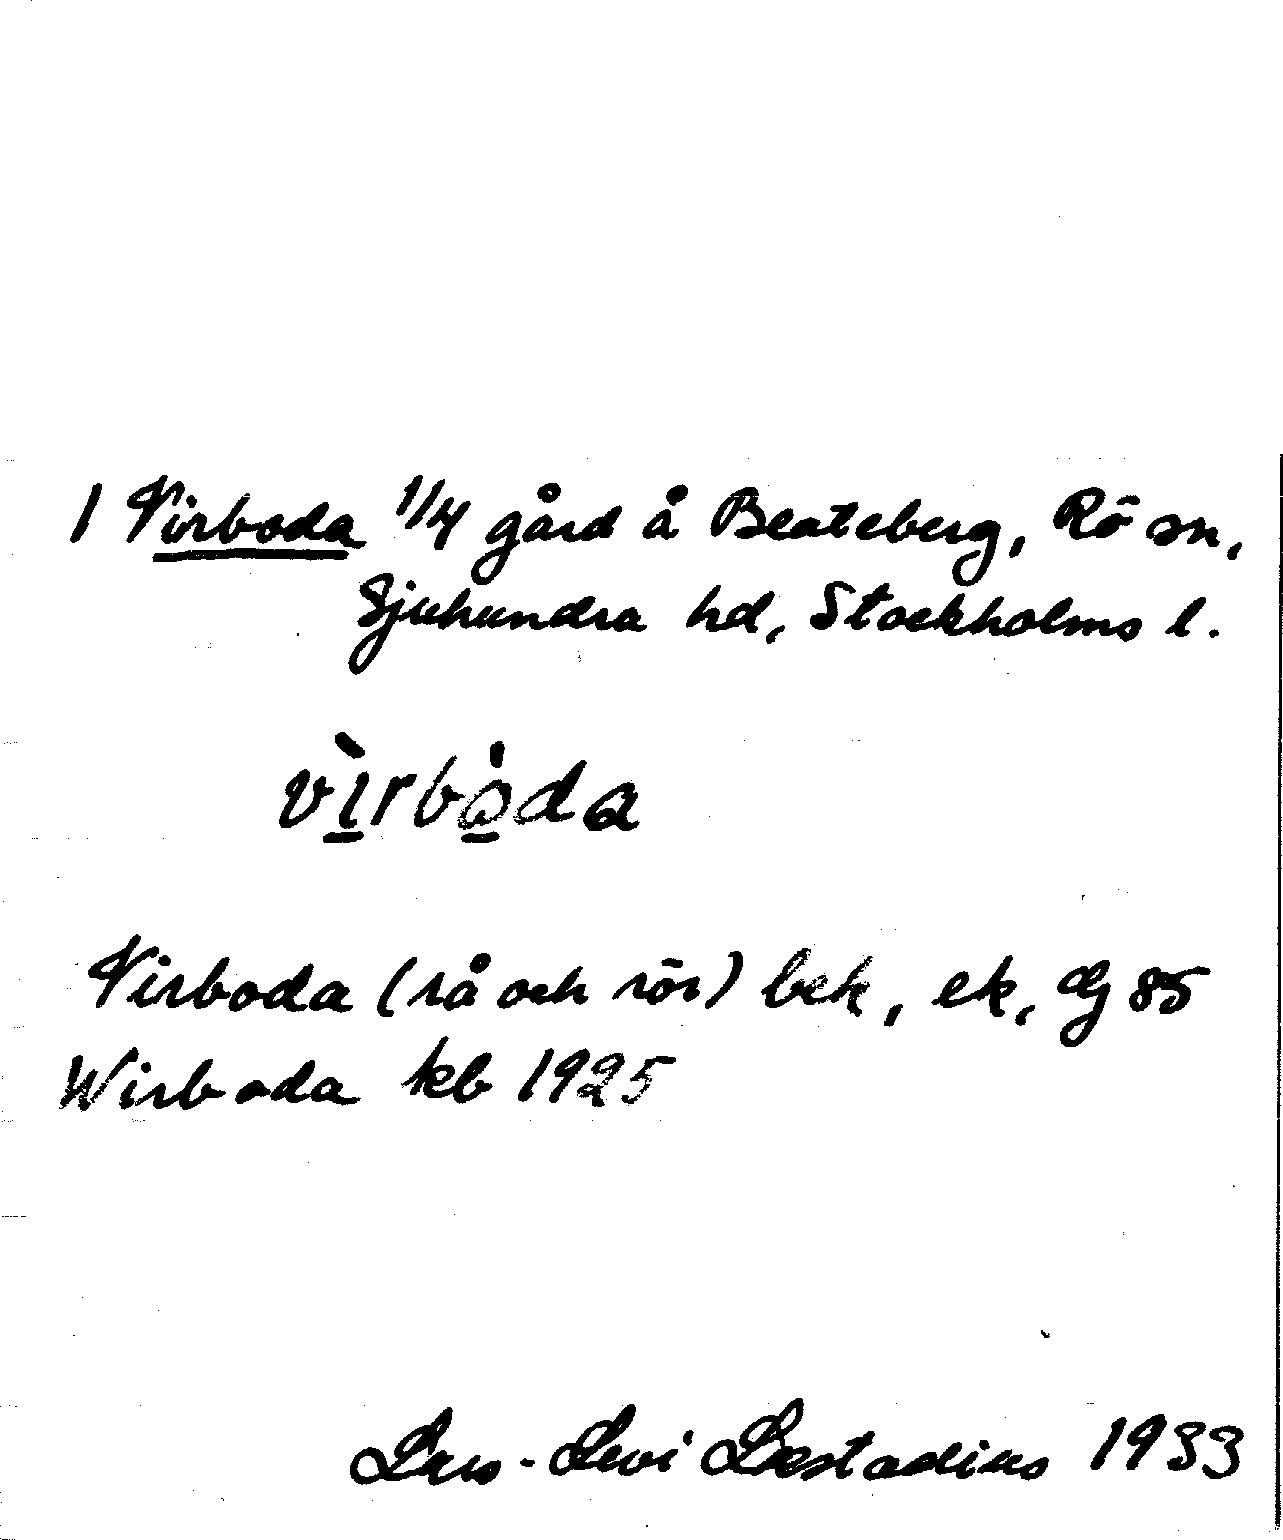 1 Virboda 1/4 gård å Beateberg, Rö sn,
Sjuhundra hd, Stockholms l.
vìrbòda
Virboda (rå och rör) bek, ek, Dj 85
Wirboda kb 1925
Lars-Levi Læstadius 1933